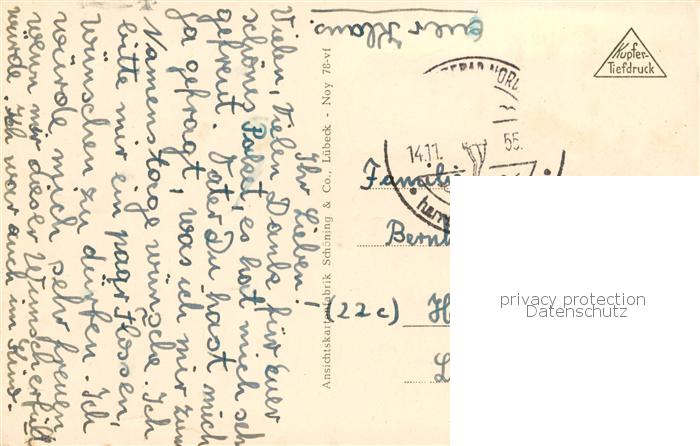 Ihr Lieben!
Vielen, Vielen Dank für euer
schönes Paket, es hat mich sehr
gefreut. Vater Du hast mich
ja gefragt, was ich mir zum
Namenstage wünsche. Ich
bitte mir ein paar Flossen,
wünschen zu dürfen. Ich
würde mich sehr freuen
wenn mir dieser Wunsch erfüllt
würde. Ich war auch im Kino.
euer Klaus.
Ansichtskartenfabrik Schöning & Co., Lübeck - Noy 78-vf
Kupfer-
Tiefdruck
14.11. 55.
Familie
Bernh
(22c) H
L
privacy protection
Datenschutz